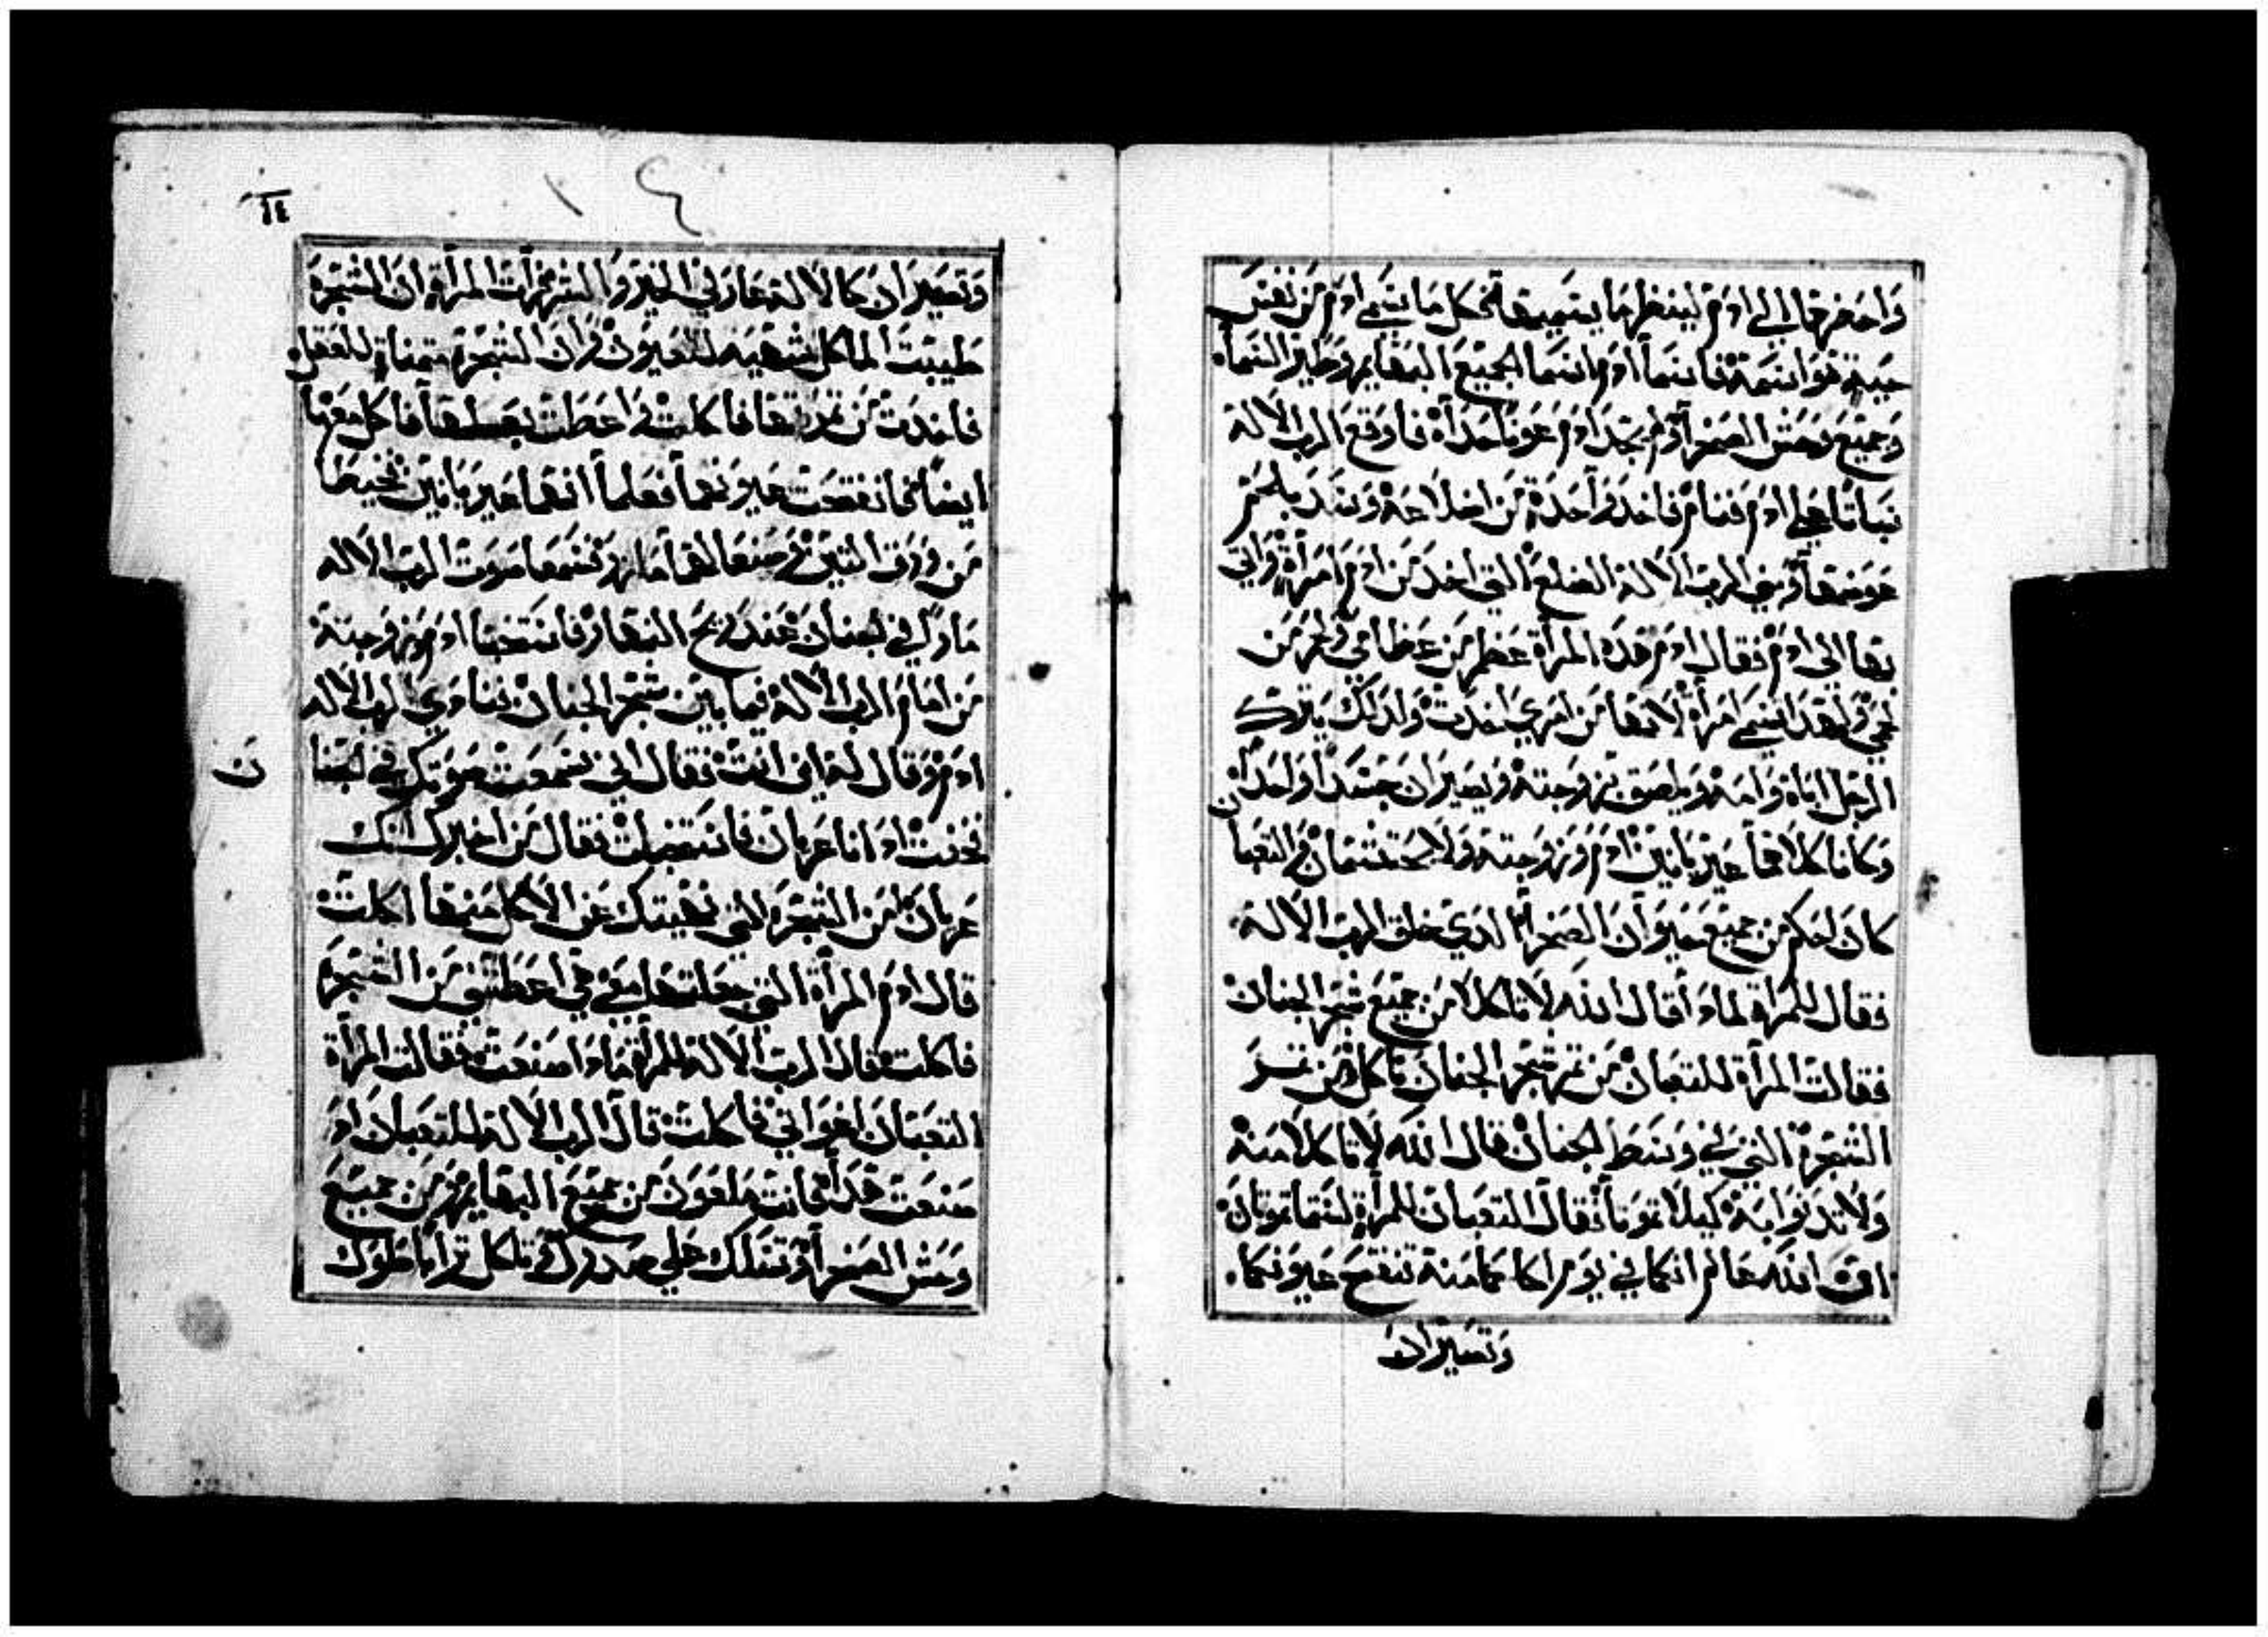 واحضرها الى ادم لينظر ما يسميها فكل ما يسمي ادم من نفس
حيه هو اسمه فاسما ادم اسما لجميع البهايم وطير السماء
وجميع وحش الصحرا ولم يجد ادم عونا حداه فاوقع الرب الاله
سباتا على ادم فنام فاخد واحدة من اضلاعه وسد بلحم
عوضها وبني الرب الاله الضلع التي اخد من ادم امراة واتي
بها الى ادم فقال ادم هده المراة عظم من عظامي ولحم من
لحمي ولهدا تسمي امراة لانها من امري اخدت ولدلك يترك
الرجل اباه وامه ويلصق بزوجته ويصيران جسدا واحدا
وكانا كلاهما عريانين ادم وزوجته ولا يحتشمان والتعبان
كان احكم من جميع حيوان الصحرا الدي خلق الرب الاله
فقال للمراة لمادا قال الله لا تاكلا من جميع شجر الجنان
فقالت المراة للتعبان من تمر شجر الجنان ناكل ومن تمر
الشجرة التي في وسط الجنان قال الله لا تاكلا منه
ولا تدنوا به كيلا تموتا فقال التعبان للمراة لستما تموتان
ان الله عالم انكما في يوم اكلكما منه تنفتح عيونكما
وتصيران
١٤
وتصيران كالالاهة عارفي الخير والشر فرات المراة ان الشجرة
طيبت الماكل شهيه للعيون وان الشجرة متمناة للعقل
فاخدت من تمرتها فاكلت واعطت بعلها فاكل معها
ايضا فانفتحت عيونهما فعلما انهما عريانين فخيطا
من ورق التين وصنعا لهما مازر فسمعا صوت الرب الاله
مارا في الجنان عند ريح النهار فاستخبا ادم وزوجته
من امام الرب الاله فيما بين شجر الجنان فنادي الرب الاله
ادم وقال له اين انت فقال اني سمعت صوتك في الجنا
ن
فخفت اد انا عريان فاستخبات فقال من اخبرك انك
عريان امن الشجرة التي نهيتك عن الاكل منها اكلت
قال ادم المراة التي جعلتها معي هي اعطتني من الشجرة
فاكلت فقال الرب الاله للمراة مادا صنعت فقالت المراة
التعبان اغواني فاكلت قال الرب الاله للتعبان اد
صنعت هدا فانت ملعون من جميع البهايم ومن جميع
وحش الصحرا وتسلك علي صدرك وتاكل ترابا طول